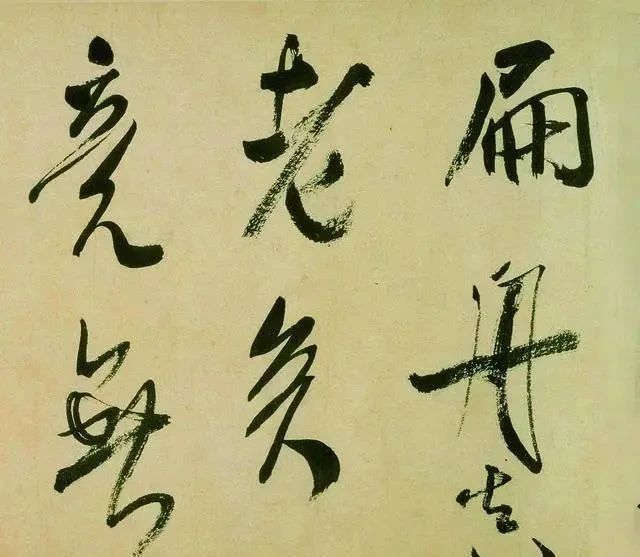 扁舟
老矣
竟無